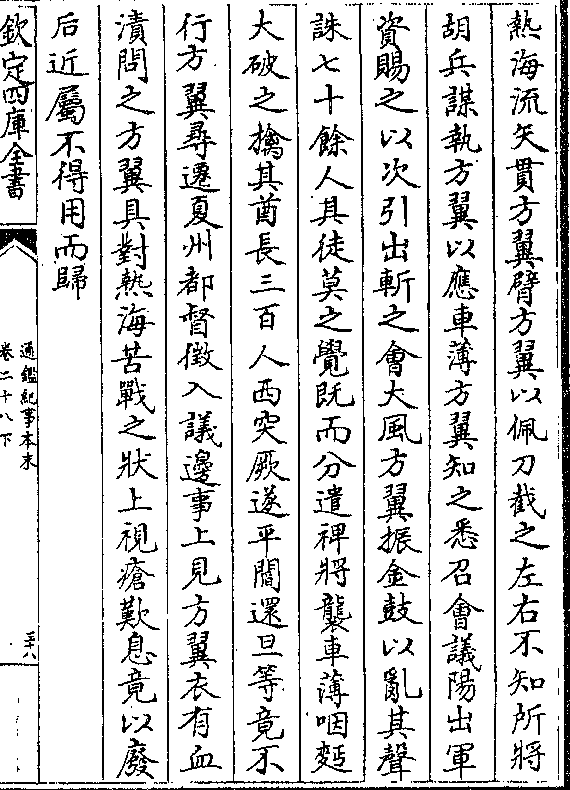 熱海流矢貫方翼臂方翼以佩刀截之左右不知所將
胡兵謀執方翼以應車薄方翼知之悉召會議陽出軍
資賜之以次引出斬之會大風方翼振金鼓以亂其聲
誅七十餘人其徒莫之覺既而分遣裨將襲車薄咽麪
大破之擒其酋長三百人西突厥遂平閻還旦等竟不
行方翼尋遷夏州都督徵入議邊事上見方翼衣有血
漬問之方翼具對熱海苦戰之狀上視瘡歎息竟以廢
后近屬不得用而歸
欽定四庫全書
通鑑紀事本末
卷二十八下
三十八